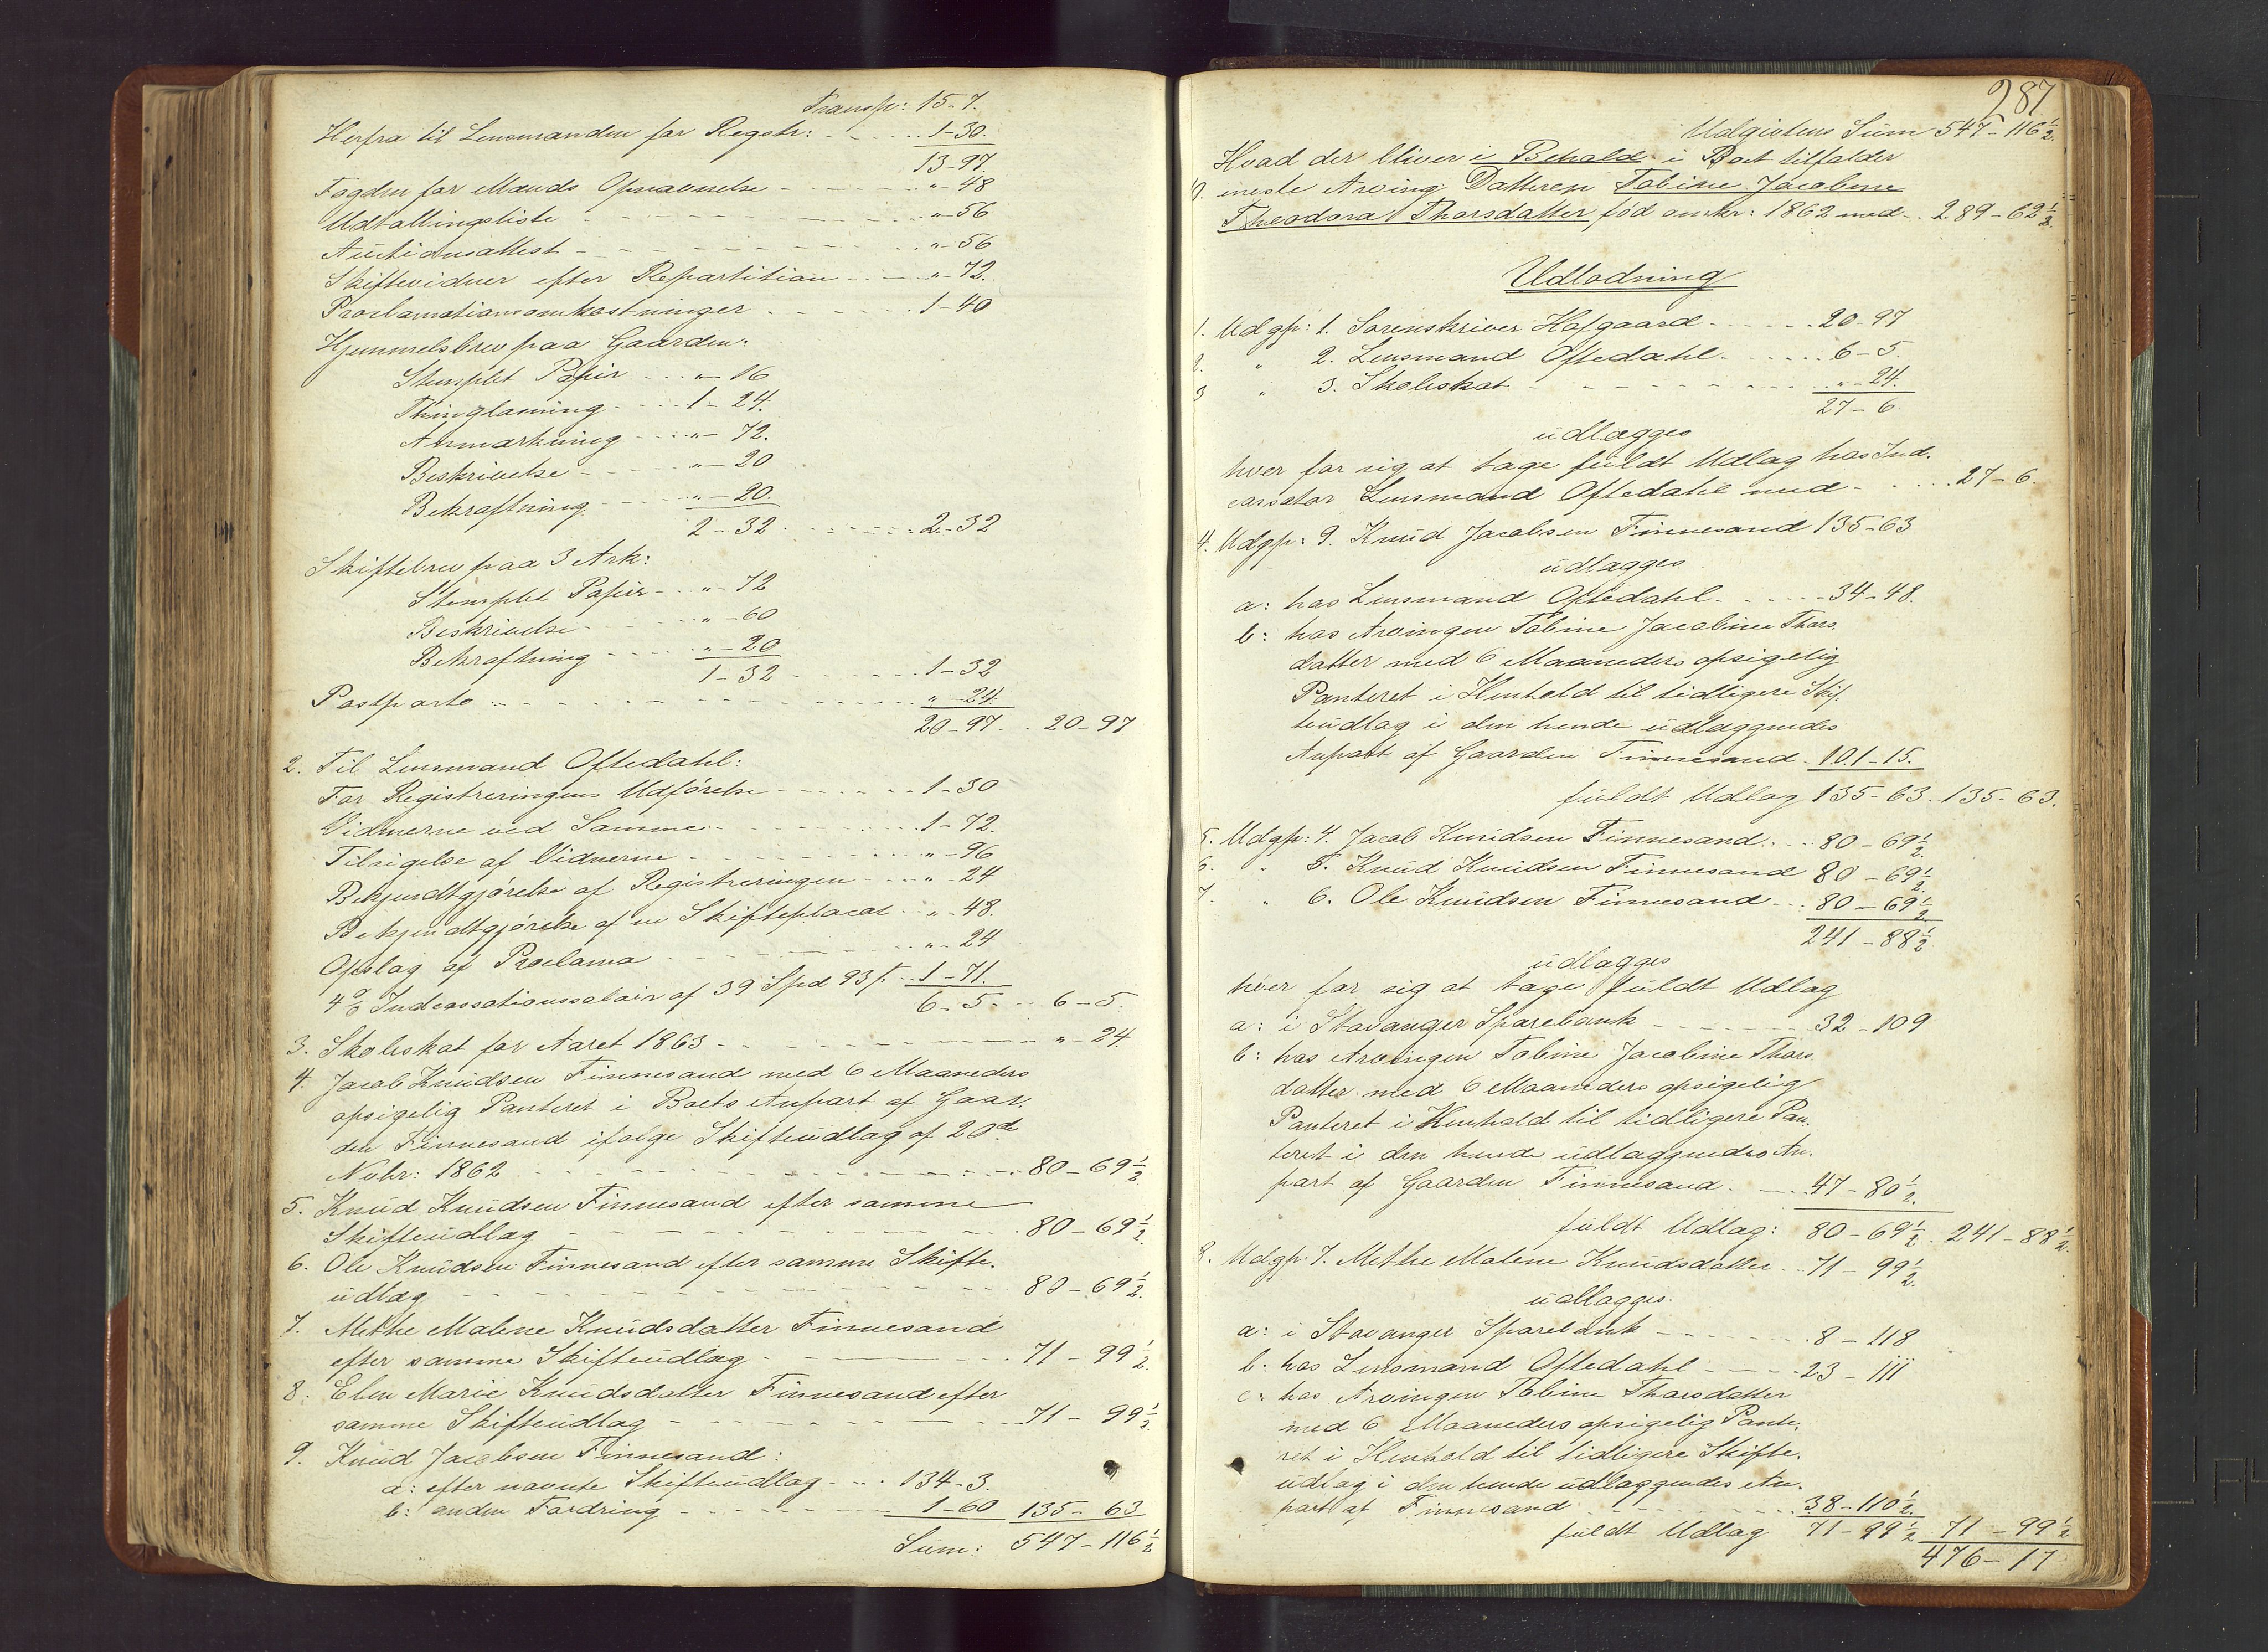 Transp: 15-7.
Herfra til Lensmanden for Registr: - - - - 1-30.
13-97.
Fogden for Mænds Opnævnelse - - - - "-48
Udtallingsliste - - - - "-56
Auctionsattest - - - - "-56
Skiftevidner efter Repartition - - - "-72.
Proclamationsomkostninger - - - - 1-40
Hjemmelsbrev paa Gaarden:
Stemplet Papir - - - "-16
Thinglæsning - - - 1-24.
Anmærkning - - - "-72.
Beskrivelse - - - "-20
Bekræftning - - - "-20.
2-32 - - - - 2-32
Skiftebrev paa 3 Ark:
Stemplet Papir - - "-72
Beskrivelse - - - "-60
Bekræftning - - - "-20
1-32 - - - - 1-32
Postporto - - - - "-24.
20-97. . 20-97
2. Til Lensmand Oftedahl:
For Registreringens Udførelse - - - - 1-30
Vidnerne ved Samme - - - - 1-72.
Tilsigelse af Vidnerne - - - - "-96
Bekjendtgjørelse af Registreringen - - - "-24
Bekjendtgjørelse af en Skifteplacat - - "-48.
Opslag af Proclama - - - - "-24
4% Indcassationssalair af 39 Spd 93 s. - 1-71.
6-5. . . 6-5.
3. Skoleskat for Aaret 1863 - - - - "-24.
4. Jacob Knudsen Finnesand med 6 Maaneders
opsigelig Panteret i Boets Anpart af Gaar-
den Finnesand ifølge Skifteudlæg af 20de
Novbr: 1862 - - - - 80-69½
5. Knud Knudsen Finnesand efter samme
Skifteudlæg - - - - 80-69½.
6. Ole Knudsen Finnesand efter samme Skifte-
udlæg - - - - 80-69½.
7. Methe Malene Knudsdatter Finnesand
efter samme Skifteudlæg - - - 71-99½.
8. Elen Marie Knudsdatter Finnesand efter
samme Skifteudlæg - - - - 71-99½
9. Knud Jacobsen Finnesand:
a: efter nævnte Skifteudlæg - - . 134-3.
b: anden Fordring - - - - 1-60 135-63
Sum: 547-116½
287
Udgiftens Sum 547-116½.
Hvad der bliver i Behold i Boet tilfalder
9. eneste Arving Datteren Tobine Jacobine
Theodora Thorsdatter fød omkr: 1862 med - . 289-62½.
Udlodning
1. Udgp: 1. Sorenskriver Hofgaard - - - - 20-97
2. " 2. Lensmand Oftedahl - - - - 6-5.
3 " 3. Skoleskat - - - - "-24.
27-6
udlægges
hver for sig at tage fuldt Udlæg hos Ind-
cassator Lensmand Oftedahl med - . . . 27-6.
4. Udgp: 9. Knud Jacobsen Finnesand 135-63
udlægges
a: hos Lensmand Oftedahl - - - - 34-48.
b: hos Arvingen Tobine Jacobine Thors-
datter med 6 Maaneders opsigelig
Panteret i Henhold til tidligere Skif-
teudlæg i den hende udlæggendes
Anpart af Gaarden Finnesand - 101-15.
fuldt Udlæg 135-63. 135-63.
5. Udgp: 4. Jacob Knudsen Finnesand . . . 80-69½
6. " 5. Knud Knudsen Finnesand 80-69½
7. " 6. Ole Knudsen Finnesand - - . 80-69½
241-88½
udlægges
hver for sig at tage fuldt Udlæg
a: i Stavanger Sparebank - - - - 32-109
b: hos Arvingen Tobine Jacobine Thors-
datter med 6 Maaneders opsigelig
Panteret i Henhold til tidligere Pan-
teret i den hende udlæggendes An-
part af Gaarden Finnesand. - - 47-80½.
fuldt Udlæg: 80-69½. 241-88½.
8. Udgp: 7. Methe Malene Knudsdatter . . 71-99½.
udlægges.
a: i Stavanger Sparebank - - - - 8-118
b: hos Lensmand Oftedahl - - - - 23-111
c: hos Arvingen Tobine Thorsdatter
med 6 Maaneders opsigelig Pante-
ret i Henhold til tidligere Skifte-
udlæg i den hende udlæggendes An-
part af Finnesand - - - - 38-110½.
fuldt Udlæg 71-99½ 71-99½
476-17